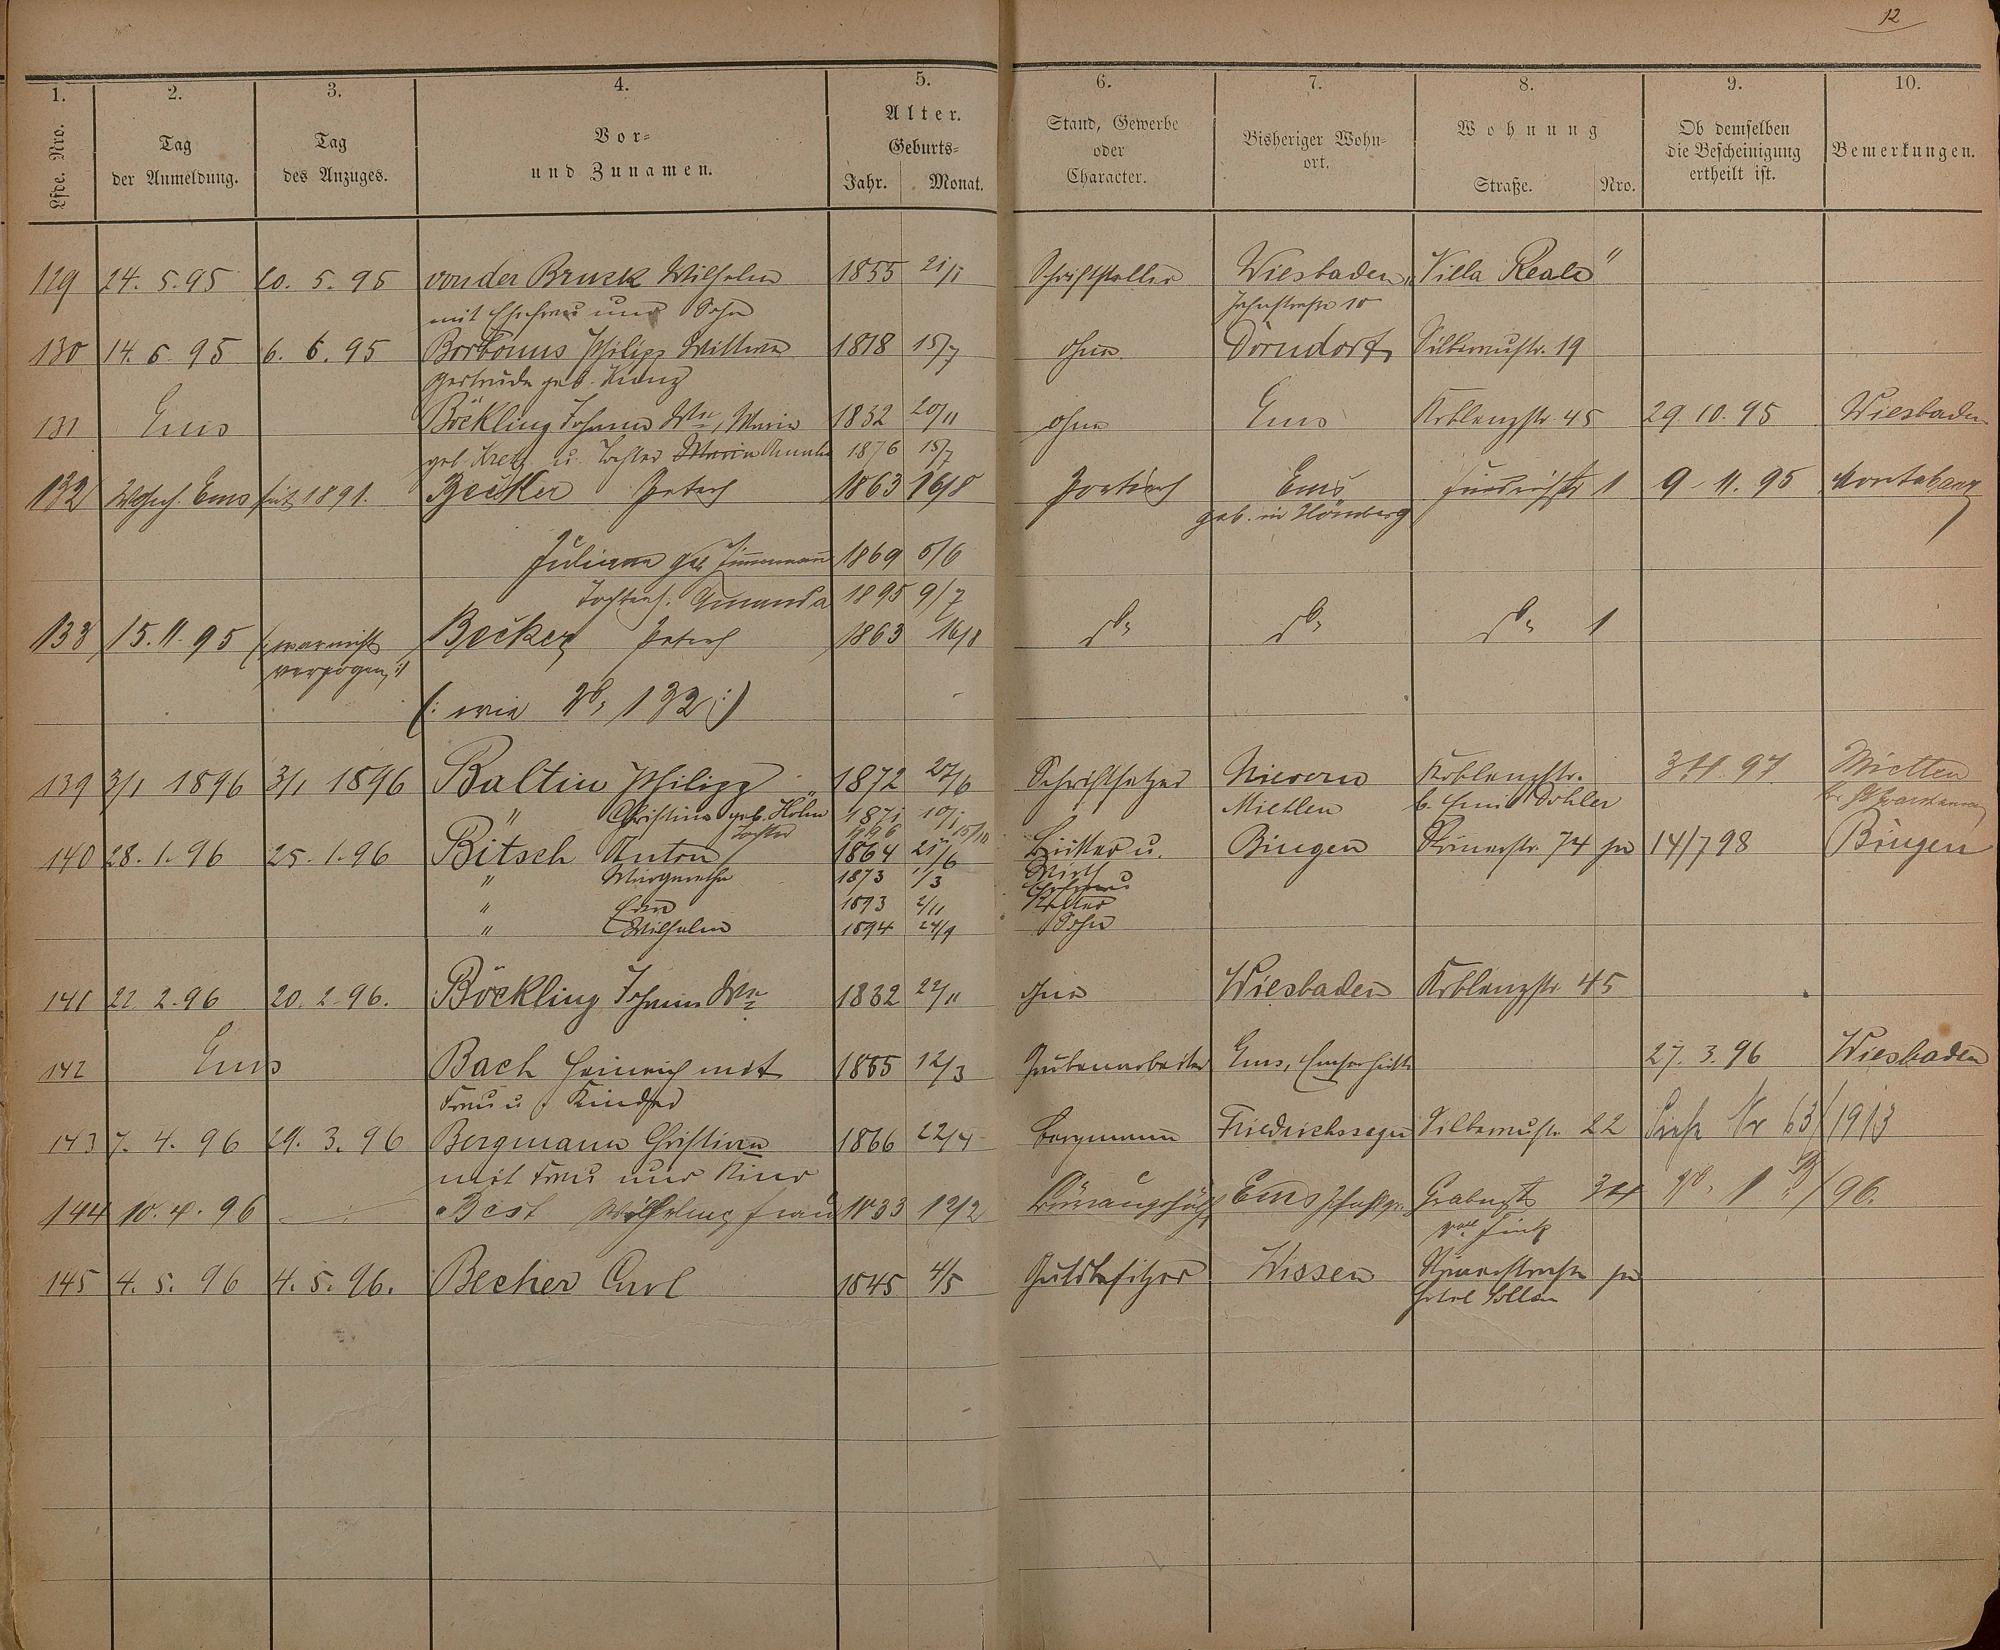 12
1. 2. 3. 4. 5. 6. 7. 8. 9. 10.
Lfde. Nro. Tag der Anmeldung. Tag des Anzuges. Vor- und Zunamen. Alter. Geburts- Jahr. Monat. Stand, Gewerbe oder Character. Bisheriger Wohn- ort. Wohnung Straße. Nro. Ob demselben die Bescheinigung ertheilt ist. Bemerkungen.
129 24. 5. 95 20. 5. 95 von der Bruck Wilhelm 1855 21/1 Schriftsteller Wiesbaden „Villa Reale“
mit Ehefrau und Sohn Jahnstraße 10
130 14. 6. 95 6. 6. 95 Borbonus Philipp Wittwe 1818 15/7 ohne Dorndorf Silberaustr. 19
Gertrude geb. Kunz
131 Ems Böckling Johann Ww, Maria 1832 20/11 ohne Ems Koblenzstr 45 29. 10. 95 Wiesbaden
geb. Kretz u. Tochter 1876 15/7
132 Ems seit 1891. Becker Peter 1863 16/8 Portier Ems 1 9. 11. 95 Montabaur
geb. in Hömberg
Juliane geb. Zimmermann 1869 5/6
Tochter. Amanda 1895 9/7
133 15. 11. 95 (: war nicht Becker Peter 1863 16/8 do do do 1
verzogen :)
(: wie No 132 :)
139 3/1 1896 3/1 1896 Baltin Philipp 1872 27/6 Schriftsetzer Nievern Koblenzstr. 97 Mietten
" Christine geb. Hohn 1871 10/1 Miehlen b. Emil Dohler
Tochter 15/10
140 28. 1. 96 25. 1. 96 Bitsch Anton 1864 21/6 u. Bingen Römerstr. 74 14/7 98 Bingen
" Margarethe 1873 1/3 Wirth
" 1893 2/11
" Wilhelm 1894 24/9 Sohn
141 22. 2. 96 20. 2. 96. Böckling Johann Ww 1832 22/11 ohne Wiesbaden Koblenzstr. 45
142 Ems Bach Heinrich mit 1865 12/3 Grubenarbeiter Ems, Emserhütte 27. 3. 96 Wiesbaden
Frau u. Kinder
143 7. 4. 96 29. 3. 96 Bergmann Christian 1866 22/4 Bergmann Friedrichssegen Silberaustr. 22 Siehe Nr 63/1913
mit Frau und Kind
144 10. 4. 96 Best Frau 1833 12/2 Ems Grabenstr. No 1 /96.
145 4. 5. 96 4. 5. 96. Becher Carl 1845 4/5 Gutsbesitzer Wissen Römerstraße
Hotel